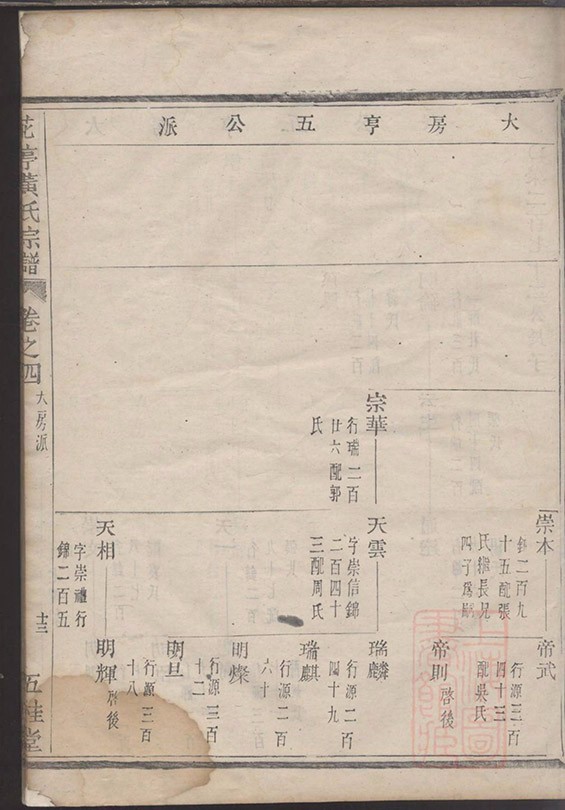 大房亨五公派
崇本
錦二百九
十五配張
帝武
行源三百
四十三
配吳氏
帝則
啓後
宗華
行瑞二百
廿六配郭
氏
天雲
字崇信錦
二百四十
三配周氏
瑞麟
行源二百
四十九
瑞麒
行源二百
六十
明燦
行源三百
十二
明旦
行源三百
十八
天相
字崇禮行
錦二百五
明輝
啓後
花亭黃氏宗譜
卷之四
大房派
十三
五桂堂